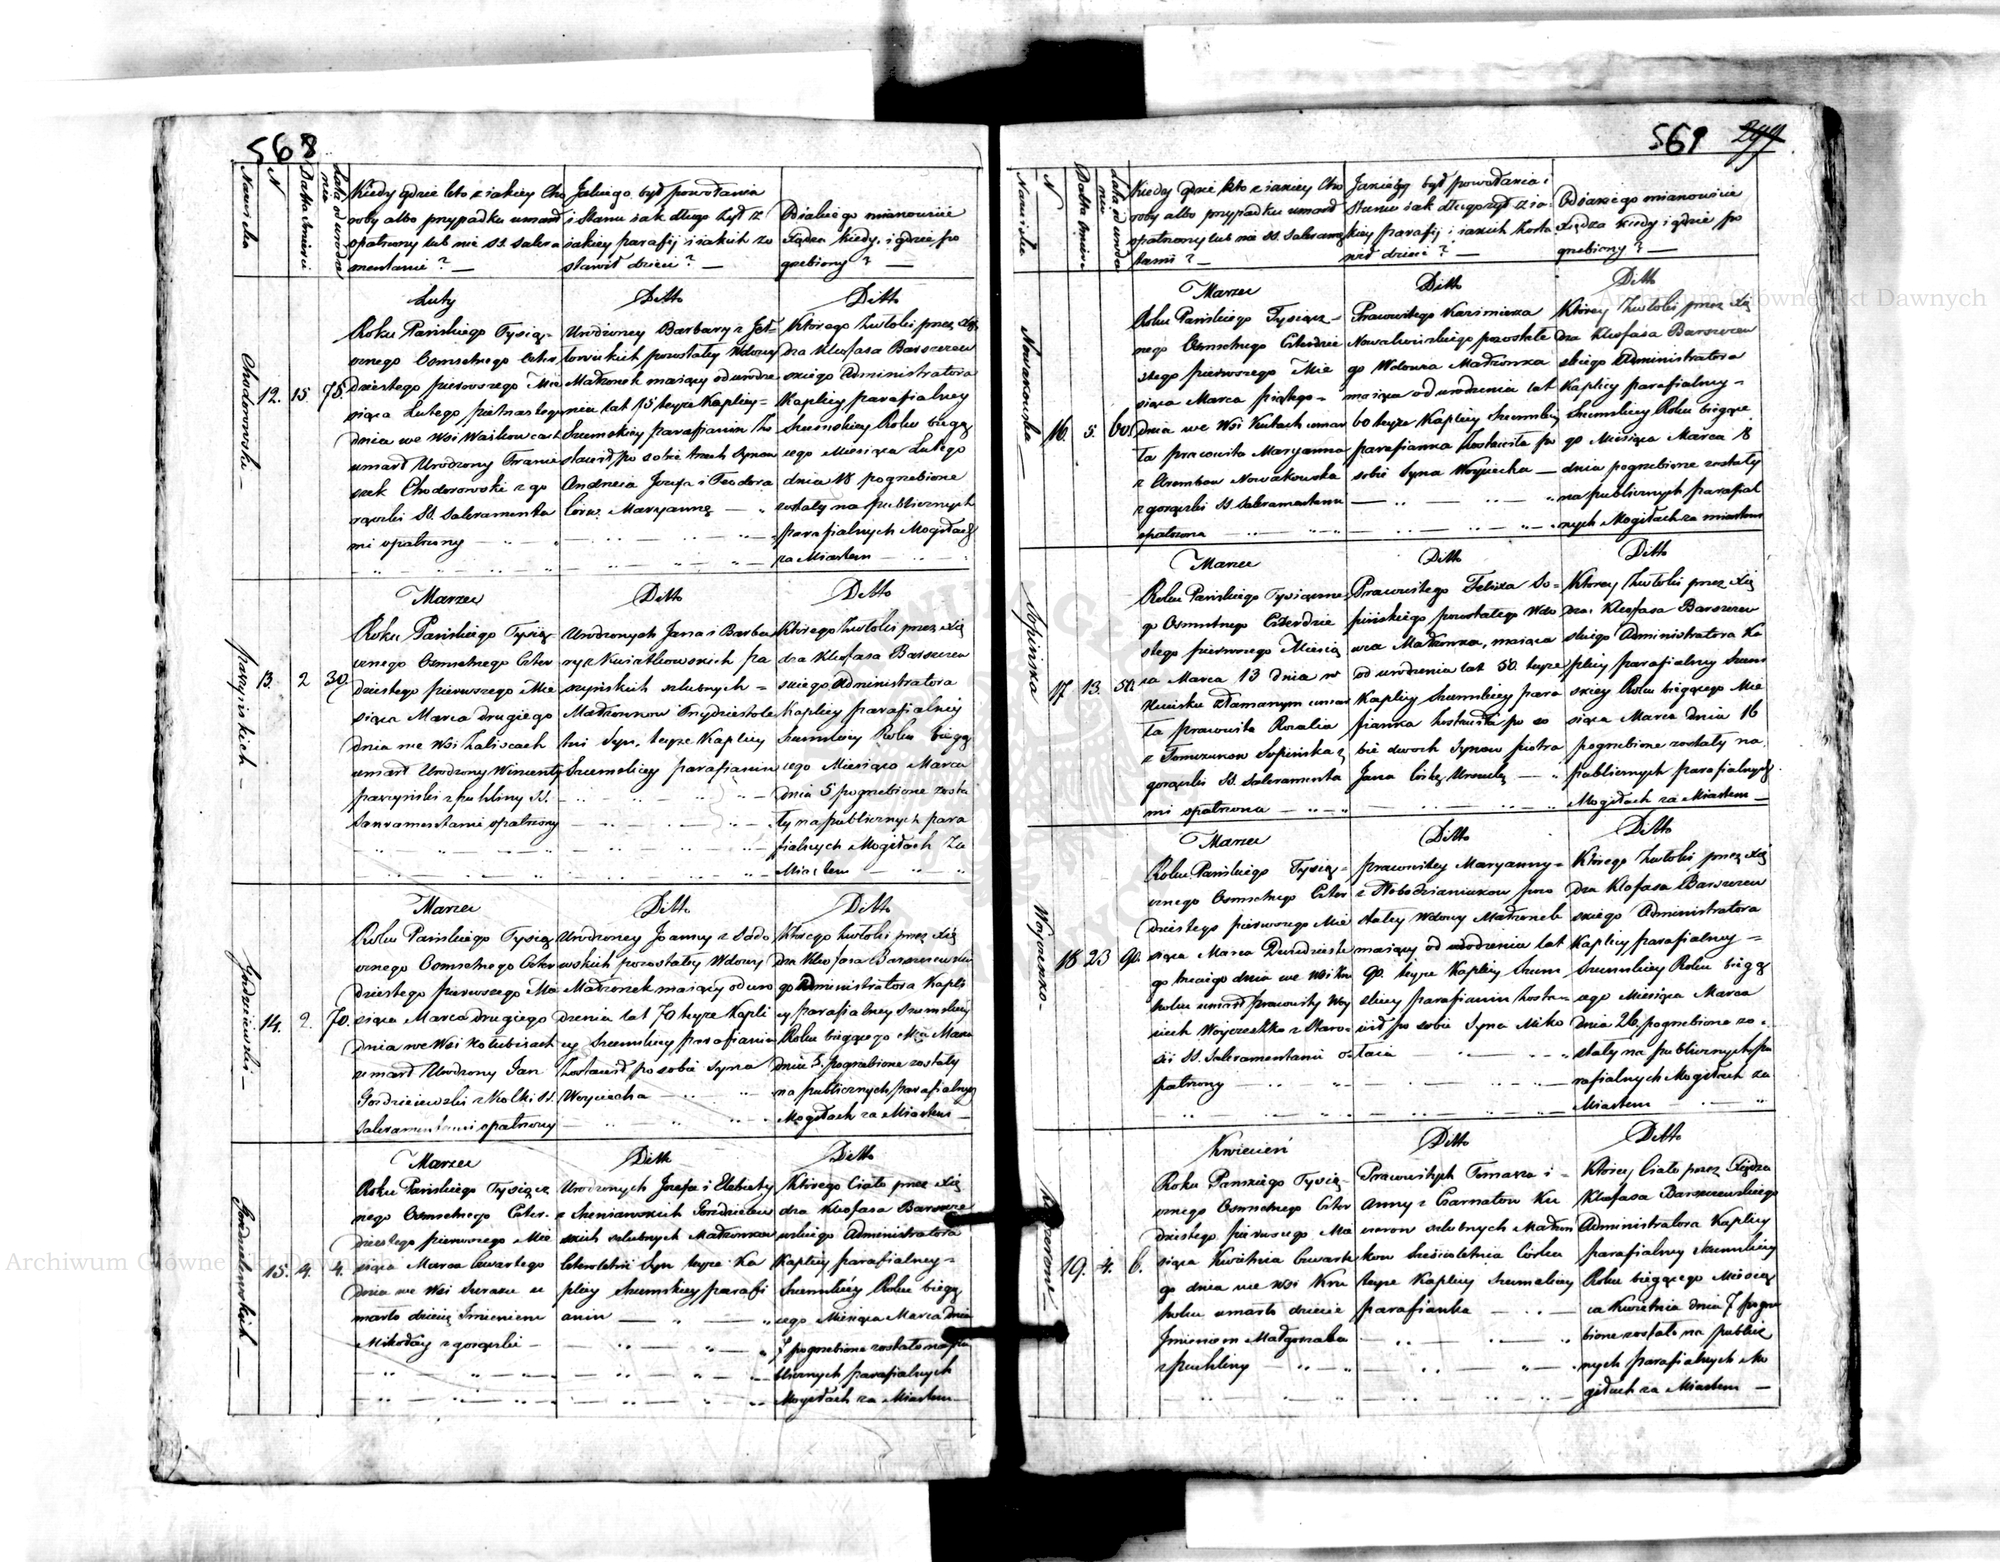 568
Nazwiska
N
Datta śmierci
Lata od urodze
nia
Kiedy gdzie kto z iakiey Cho
roby albo przypadku umarł
opatrzony lub nie SS. Sakra
mentami? —
Jakiego był powołania
i Stanu iak długo żył z
iakiey parafij i iakich zo
stawił dzieci? —
Od iakiego mianowicie
Xiędza kiedy, i gdzie po
grzebiony? —
Chodorowski —
12.
15.
75.
Luty
Roku Pańskiego Tysiąc
cznego Osmsetnego Czter
dziestego pierwszego Mie
siąca Lutego piętnastego
dnia we Wsi
umarł Urodzony Franci
szek Chodorowski z go
rączki SS. Sakramenta
mi opatrzony
Ditto
Urodzoney Barbary z
pozostałey Wdowy
Małżonek maiący od urodze
nia lat 75 teyże Kaplicy
Szumskiey parafianin Zo
stawił po sobie trzech Synow
Andrzeia Jozefa i Teodora
Corkę Maryannę —
Ditto
Którego Zwłoki przez Xię
dza Kleofasa Barszczew
skiego Administratora
Kaplicy parafialney
Szumskiey Roku bieżą
cego Miesiąca Lutego
dnia 18 pogrzebione
zostały na publicznych
parafialnych Mogiłach
za Miastem
13.
2
30.
Marzec
Roku Pańskiego Tysiąc
cznego Osmsetnego Czter
dziestego pierwszego Mie
siąca Marca drugiego
dnia we Wsi Zaliscach
umarł Urodzony Wincenty
z puchliny SS.
Sakramentami opatrzony
Ditto
Urodzonych Jana i Barba
ry z Kwiatkowskich Pa
szyńskich szlubnych
Małżonkow Trzydziestole
tni Syn, teyże Kaplicy
Szumskiey parafianin
Ditto
Którego Zwłoki przez Xię
dza Kleofasa Barszczew
skiego Administratora
Kaplicy parafialney
Szumskiey Roku bieżą
cego Miesiąca Marca
dnia 5 pogrzebione zosta
ły na publicznych para
fialnych Mogiłach Za
Miastem
14.
2.
70.
Marzec
Roku Pańskiego Tysiąc
cznego Osmsetnego Czter
dziestego pierwszego Mie
siąca Marca drugiego
dnia we Wsi
umarł Urodzony Jan
z Kolki SS.
Sakramentami opatrzony
Ditto
Urodzoney Joanny z Sado
wskich pozostałey Wdowy
Małżonek maiący od uro
dzenia lat 70 teyże Kapli
cy Szumskiey parafianin
Zostawił po sobie Syna
Woyciecha
Ditto
Którego Zwłoki przez Xię
dza Kleofasa Barszczewskie
go Administratora Kapli
cy parafialney Szumskiey
Roku bieżącego Mca Marca
dnia 5. pogrzebione zostały
na publicznych parafialnych
Mogiłach za Miastem —
15.
4.
4.
Marzec
Roku Pańskiego Tysiącz
nego Osmsetnego Czter
dziestego pierwszego Mie
siąca Marca Czwartego
dnia we Wsi u
marło dziecię Jmieniem
Mikołay z gorączki —
Ditto
Urodzonych Jozefa i Elżbiety
z Szeniawskich
skich szlubnych Małżonkow
Czteroletni Syn teyże Ka
plicy Szumskiey parafi
anin —
Ditto
Którego Ciało przez Xię
dza Kleofasa Barszcze
wskiego Administratora
Kaplicy parafialney
Szumskiey Roku bieżą
cego Miesiąca Marca dnia
7 pogrzebione zostało na pu
blicznych parafialnych
Mogiłach za Miastem
569
Nazwiska
N
Datta śmierci
Lata od urodze
nia
Kiedy gdzie kto z iakiey Cho
roby albo przypadku umarł
opatrzony lub nie SS. Sakramen
tami? —
Jakiego był powołania i
Stanu iak długo żył z ia
kiey parafij i iakich Zosta
wił dzieci? —
Od iakiego mianowicie
Xiędza kiedy i gdzie po
grzebiony? —
Nowakowska —
16.
5.
60.
Marzec
Roku Pańskiego Tysiącz
nego Osmsetnego Czterdzie
stego pierwszego Mie
siąca Marca piątego
dnia we Wsi Kutach umar
ła pracowita Maryanna
z Nowakowska
z gorączki SS. Sakramentami
opatrzona
Ditto
Pracowitego Kazimierza
pozostałe
go Wdowca Małżonka
maiąca od urodzenia lat
60 teyże Kaplicy Szumskiey
parafianka Zostawiła po
sobie Syna Woyciecha —
Ditto
Którey Zwłoki przez Xię
dza Kleofasa Barszczew
skiego Administratora
Kaplicy parafialney
Szumskiey Roku bieżące
go Miesiąca Marca 8
dnia pogrzebione zostały
na publicznych parafial
nych Mogiłach za miastem
Sopińska
17.
13.
50.
Marzec
Roku Pańskiego Tysiączne
go Osmsetnego Czterdzie
stego pierwszego Miesią
ca Marca 13 dnia w
umar
ła pracowita Rozalia
z Sopińska z
gorączki SS. Sakramenta
mi opatrzona —
Ditto
Pracowitego Felixa So
pińskiego pozostałego Wdo
wca Małżonka, maiąca
od urodzenia lat 50. teyże
Kaplicy Szumskiey para
fianka Zostawiła po so
bie dwoch Synow Piotra
Jana Corkę Urszulę —
Ditto
Którey Zwłoki przez Xię
dza Kleofasa Barszczew
skiego Administratora Ka
plicy parafialney Szum
skiey Roku bieżącego Mie
siąca Marca dnia 16
pogrzebione zostały na
publicznych parafialnych
Mogiłach za Miastem —
18
23
90.
Marzec
Roku Pańskiego Tysiąc
cznego Osmsetnego Czter
dziestego pierwszego Mie
siąca Marca Dwudzieste
go trzeciego dnia we Wsi
umarł pracowity Woy
ciech z Staro
ści SS. Sakramentami o
patrzony
Ditto
pracowitey Maryanny
z pozo
stałey Wdowy Małżonek
maiący od urodzenia lat
90. teyże Kaplicy Szum
skiey parafianin Zosta
wił po sobie Syna Miko
łaia
Ditto
Którego Zwłoki przez Xię
dza Kleofasa Barszczew
skiego Administratora
Kaplicy parafialney
Szumskiey Roku bieżą
cego Miesiąca Marca
dnia 26 pogrzebione zo
stały na publicznych pa
rafialnych Mogiłach za
Miastem
19.
4.
6.
Kwiecień
Roku Pańskiego Tysiąc
cznego Osmsetnego Czter
dziestego pierwszego Mie
siąca Kwietnia Czwarte
go dnia we Wsi
umarło dziecie
Jmieniem Małgorzata
z puchliny
Ditto
Pracowitych Tomasza i
Anny z
szlubnych Małżon
kow Sześcioletnia Corka
teyże Kaplicy Szumskiey
parafianka
Ditto
Którey Ciało przez Xiędza
Kleofasa Barszczewskiego
Administratora Kaplicy
parafialney Szumskiey
Roku bieżącego Miesią
ca Kwietnia dnia 7 pogrze
bione zostało na publicz
nych parafialnych Mo
giłach za Miastem —
Archiwum Główne Akt Dawnych
Archiwum Główne Akt Dawnych